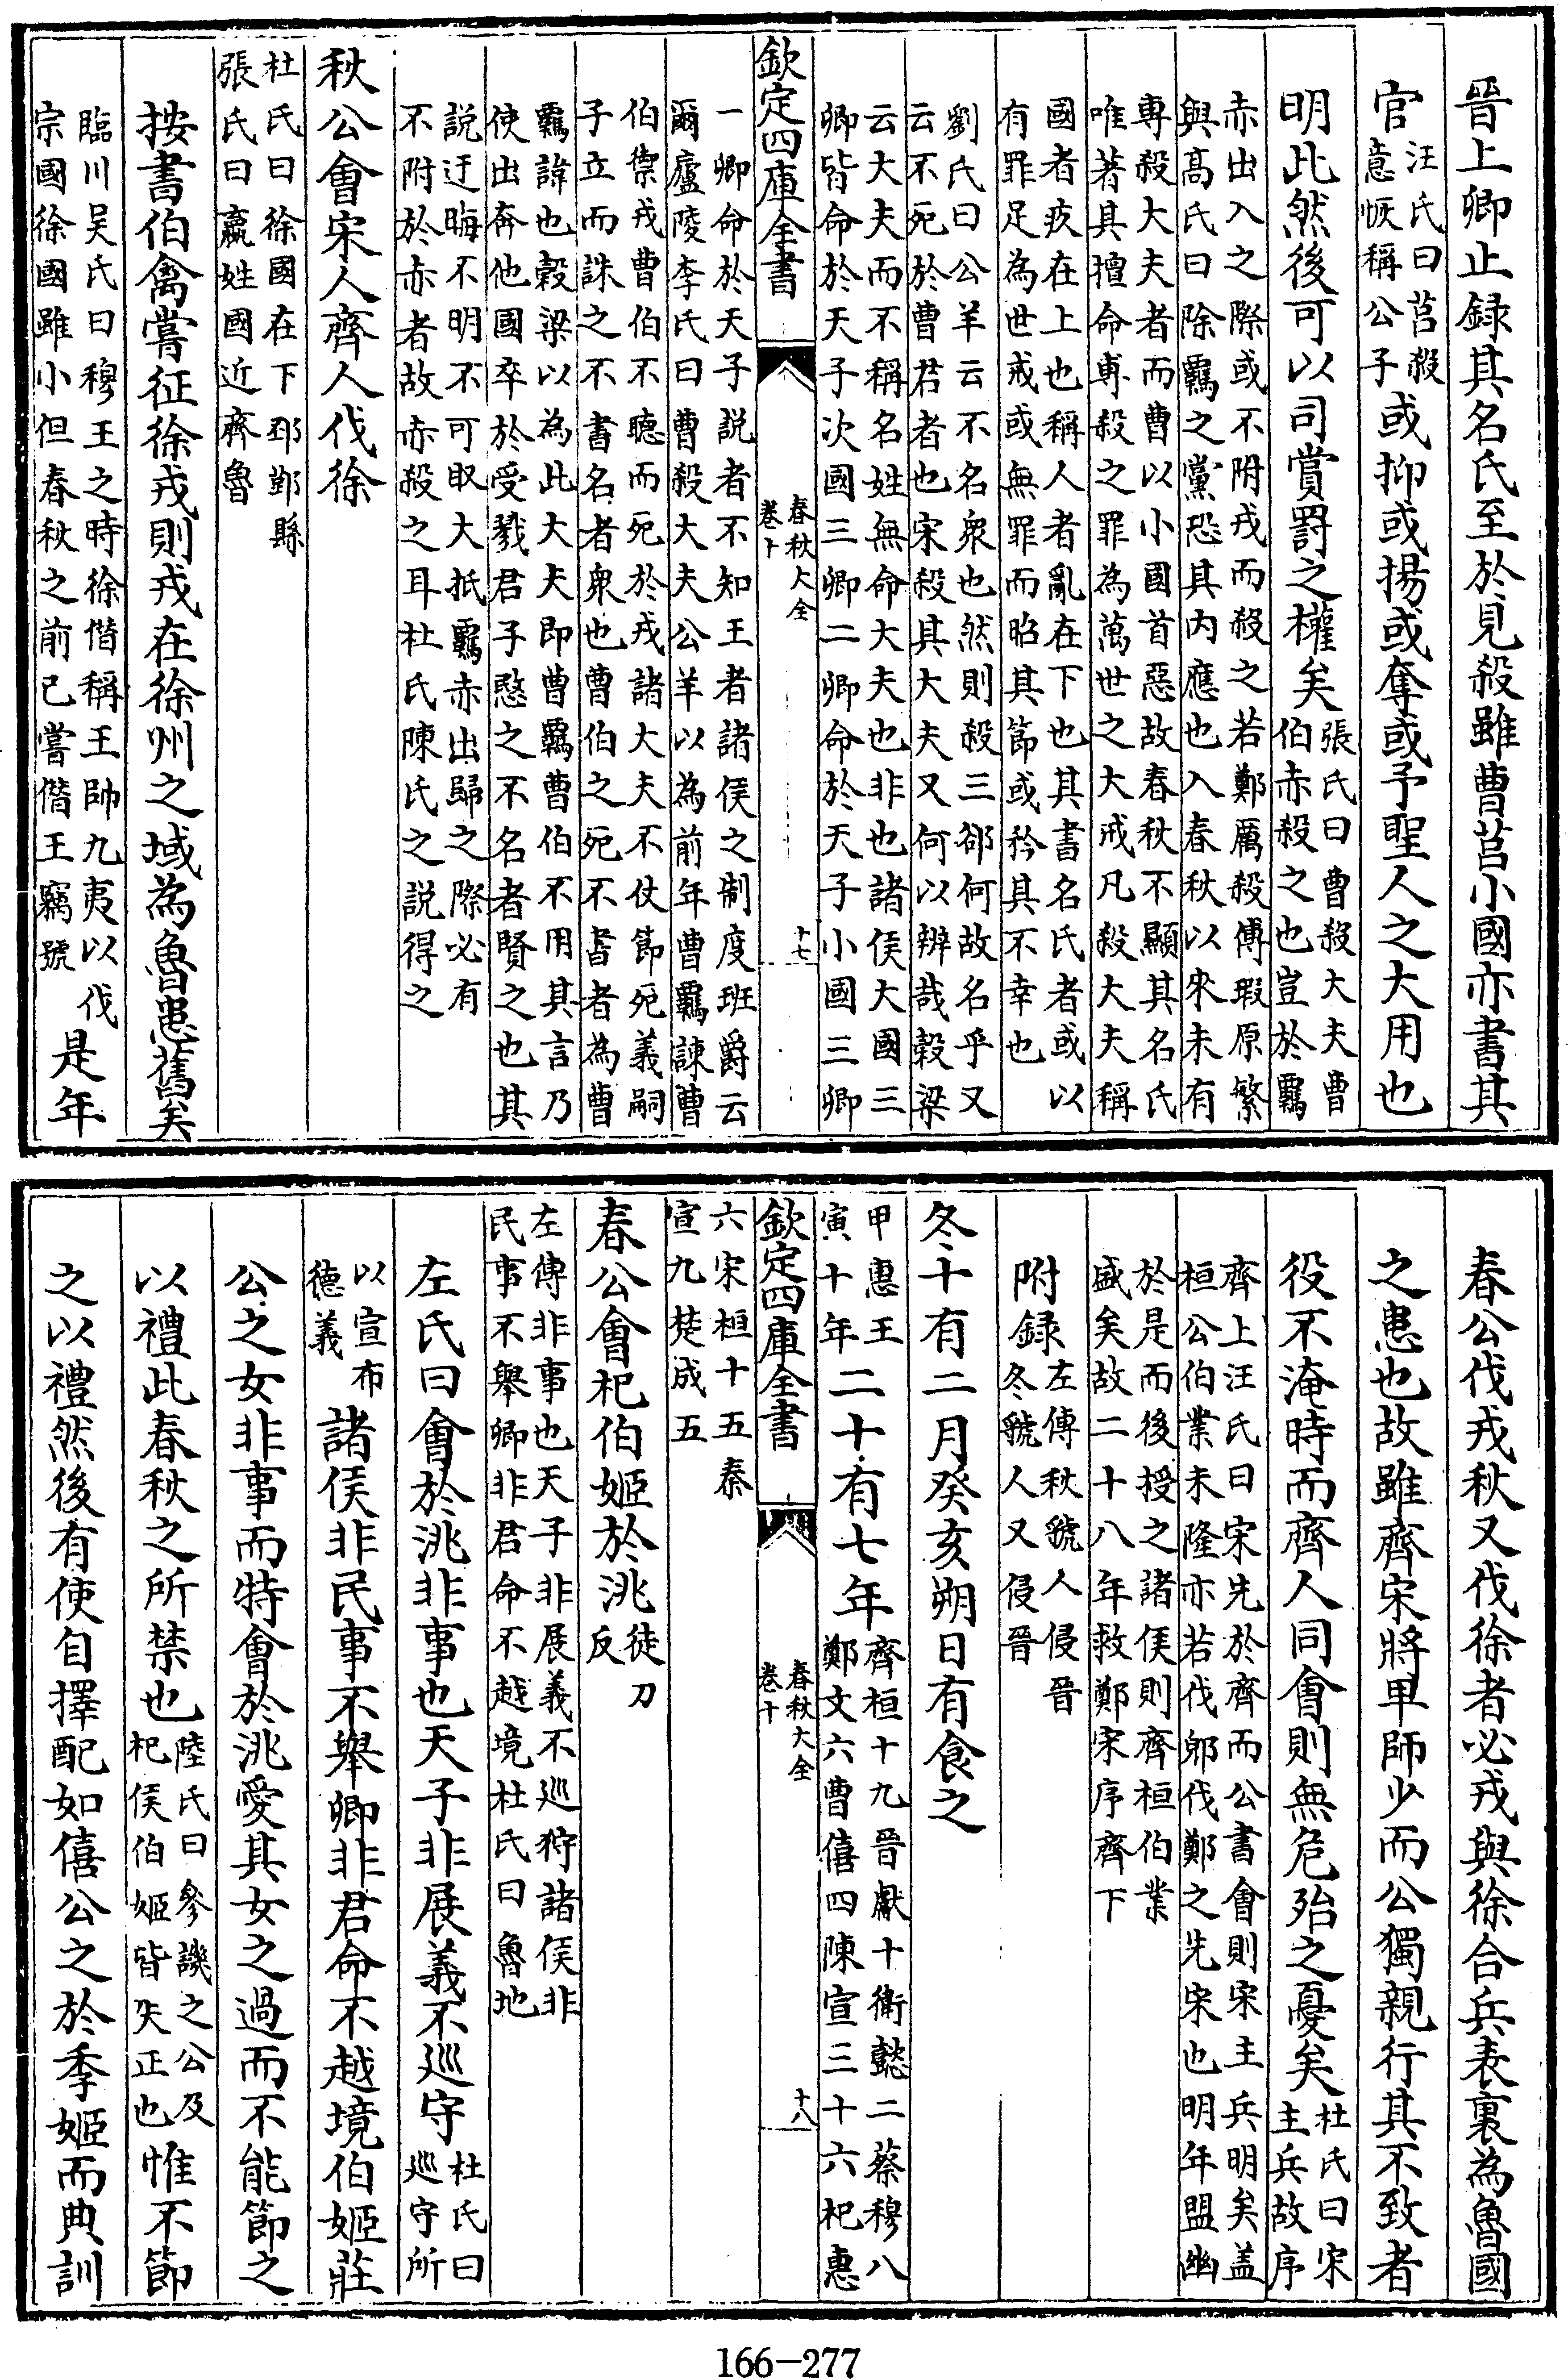 晉上卿止録其名氏至於見殺雖曹莒小國亦書其
官汪氏曰莒殺意恢稱公子或抑或揚或奪或予聖人之大用也
明此然後可以司賞罰之權矣張氏曰曹殺大夫曹伯赤殺之也豈於羈
赤出入之際或不附戎而殺之若鄭厲殺傅瑕原繁
與高氏曰除羈之黨恐其内應也入春秋以來未有
專殺大夫者而曹以小國首惡故春秋不顯其名氏
唯著其擅命專殺之罪為萬世之大戒凡殺大夫稱
國者疚在上也稱人者亂在下也其書名氏者或以
有罪足為世戒或無罪而昭其節或矜其不幸也
劉氏曰公羊云不名衆也然則殺三郤何故名乎又
云不死於曹君者也宋殺其大夫又何以辨哉穀梁
云大夫而不稱名姓無命大夫也非也諸侯大國三
卿皆命於天子次國三卿二卿命於天子小國三卿
欽定四庫全書
春秋大全
卷十
十七
一卿命於天子説者不知王者諸侯之制度班爵云
爾廬陵李氏曰曹殺大夫公羊以為前年曹羈諫曹
伯禦戎曹伯不聽而死於戎諸大夫不仗節死義嗣
子立而誅之不書名者衆也曹伯之死不書者為曹
羈諱也穀梁以為此大夫即曹羈曹伯不用其言乃
使出奔他國卒於受戮君子愍之不名者賢之也其
説迂晦不明不可取大抵羈赤出歸之際必有
不附於赤者故赤殺之耳杜氏陳氏之説得之
秋公會宋人齊人伐徐
杜氏曰徐國在下邳鄞縣
張氏曰嬴姓國近齊魯
按書伯禽嘗征徐戎則戎在徐州之域為魯患舊矣
臨川吴氏曰穆王之時徐僭稱王帥九夷以伐
宗國徐國雖小但春秋之前已嘗僭王竊號是年
春公伐戎秋又伐徐者必戎與徐合兵表裏為魯國
之患也故雖齊宋將卑師少而公獨親行其不致者
役不淹時而齊人同會則無危殆之憂矣杜氏曰宋主兵故序
齊上汪氏曰宋先於齊而公書會則宋主兵明矣盖
桓公伯業未隆亦若伐郳伐鄭之先宋也明年盟幽
於是而後授之諸侯則齊桓伯業
盛矣故二十八年救鄭宋序齊下
附録左傳秋虢人侵晉冬虢人又侵晉
冬十有二月癸亥朔日有食之
甲寅惠王十年二十有七年齊桓十九晉獻十衛懿二蔡穆八鄭文六曹僖四陳宣三十六杞惠
欽定四庫全書
春秋大全
卷十
十八
六宋桓十五秦
宣九楚成五
春公會杞伯姬於洮徒刀反
左傳非事也天子非展義不巡狩諸侯非
民事不舉卿非君命不越境杜氏曰魯地
左氏曰會於洮非事也天子非展義不巡守杜氏曰巡守所
以宣布德義諸侯非民事不舉卿非君命不越境伯姬莊
公之女非事而特會於洮愛其女之過而不能節之
以禮此春秋之所禁也陸氏曰參譏之公及杞侯伯姬皆失正也惟不節
之以禮然後有使自擇配如僖公之於季姬而典訓
166-277